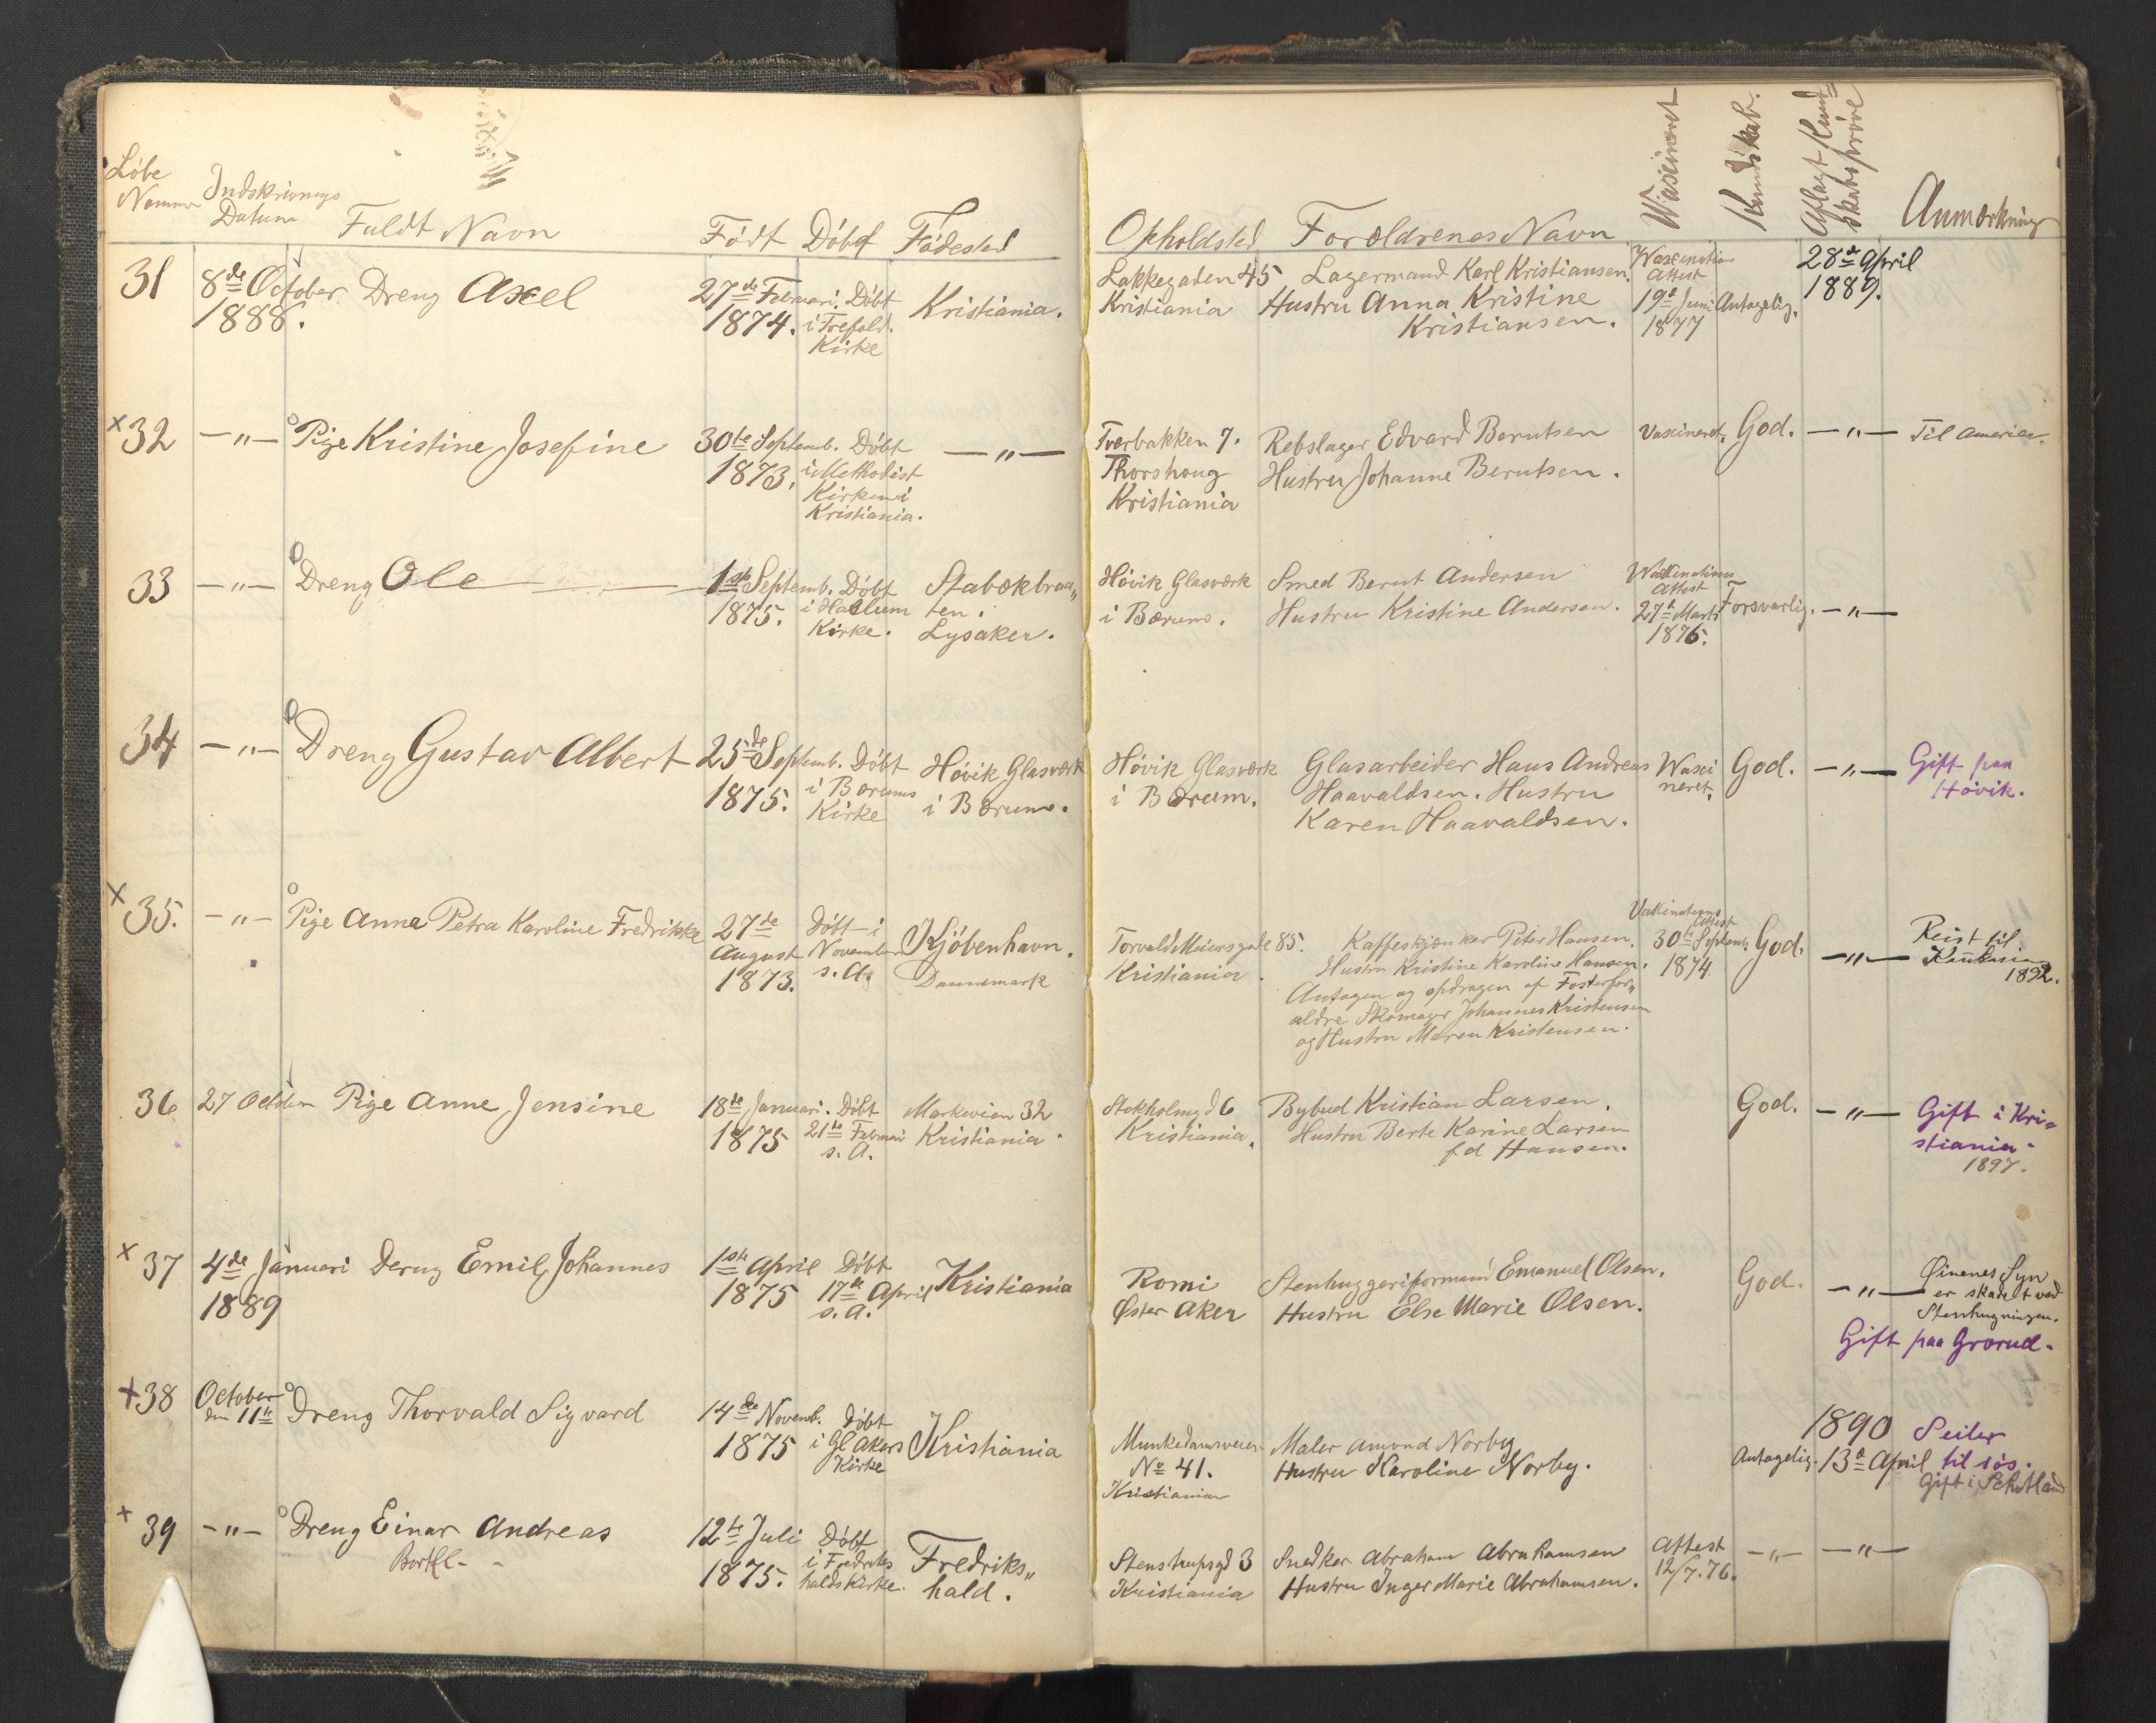 Löbe
Nommer
Indskrivnings
Datum
Fuldt Navn
Födt
Döbt
Födested
Opholdsted
Foroldrenes Navn
Wascineret
Kundskab.
Aflagt Kund=
skabsprøve
Anmærkning
31
8de October
1888.
Dreng Axel
27de Februari.
1874.
Döbt
i Trefold.
Kirke
Kristiania.
Lakkegaden 45
Kristiania
Lagermand Karl Kristiansen.
Hustru Anna Kristine
Kristiansen.
Attest
19de Juni
1877
Antagelig.
28de April
1889.
×32
—"—
Pige Kristine Josefine
30te Septemb.
1873.
Döbt
i Methodist
Kirken i
Kristiania.
—"—
Tverbakken 7.
Thorshoug
Kristiania
Rebslager Edvard Berntsen
Hustru Johanne Berntsen.
Vascineret.
God.
—"—
Til America.
33
—"—
Dreng Ole
1ste Septemb.
1875.
Döbt
i Haslum
Kirke.
Stabækbraa„
ten.
Lysaker.
Hövik Glasværk
i Bærum.
Smed Bernt Andersen
Hustru Kristine Andersen.
Attest
27de Marts
1876.
Forsvarlig.
—"—
34
—"—
Dreng Gustav Albert
25de Septemb.
1875.
Döbt
i Bærums
Kirke
Hövik Glasværk
i Bærum.
Hövik Glasværk
i Bærum.
Glasarbeider Hans Andreas
Haavaldsen. Hustru
Karen Haavaldsen.
Wasci
neret.
God.
—"—
Gift paa
Hövik.
×35.
—"—
Pige Anna Petra Karoline Fredrikke
27de
August
1873.
Döbt i
November
s. A.
Kjöbenhavn.
Dannemark
Torvald Meiersgade 85.
Kristiania.
Kaffeskjænker Peter Hansen.
Hustru Kristine Karoline Hansen.
Antagen og opdragen af Fosterfor„
ældre Skomager Johannes Kristensen
og Hustru Maren Kristensen.
Vakcinations
Attest
30te Septemb.
1874
God.
—"—
Reist til
Kaukasien
1892.
36
27 October
Pige Anne Jensine
18de Januari.
1875
Döbt
21de Februari
s. A.
Markveien 32
Kristiania.
Stokholmgd 6
Kristiania.
Bybud Kristian Larsen.
Hustru Berte Karine Larsen
fd Hansen.
God.
—"—
Gift i Kri=
stiania.
1897.
×37
4de Januari
1889
Dreng Emil Johannes
1ste April
1875
Döbt
17de April
s. A.
Kristiania
Romi
Øster Aker
Stenhuggeriformand Emanuel Olsen.
Hustru Else Marie Olsen.
God.
—"—
Øinenes Syn
er skadet ved
Stenhugningen.
Gift paa Grorud.
×38
October
den 11te
Dreng Thorvald Sigvard
14de Novemb.
1875
Döbt
i Gl Akers
Kirke
Kristiania
Munkedamsveien
No 41.
Kristiania
Maler Amund Norby
Hustru Karoline Norby.
Antagelig.
1890
13de April
Seiler
til sös.
Gift i Skotland
×39
—"—
Dreng Einar Andreas
12te Juli
1875.
Döbt
i Fredriks
halds Kirke.
Fredriks„
hald.
Stenstrupsgd 3
Kristiania
Snedker Abraham Abrahamsen
Hustru Inger Marie Abrahamsen.
Attest
12/7.76.
—"—
—"—